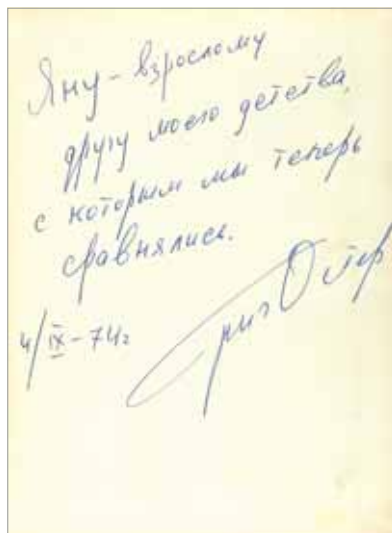 Яну - взрослому
другу моего детства,
с которым мы теперь
сравнялись.
4/IX - 74г
Григ Остер